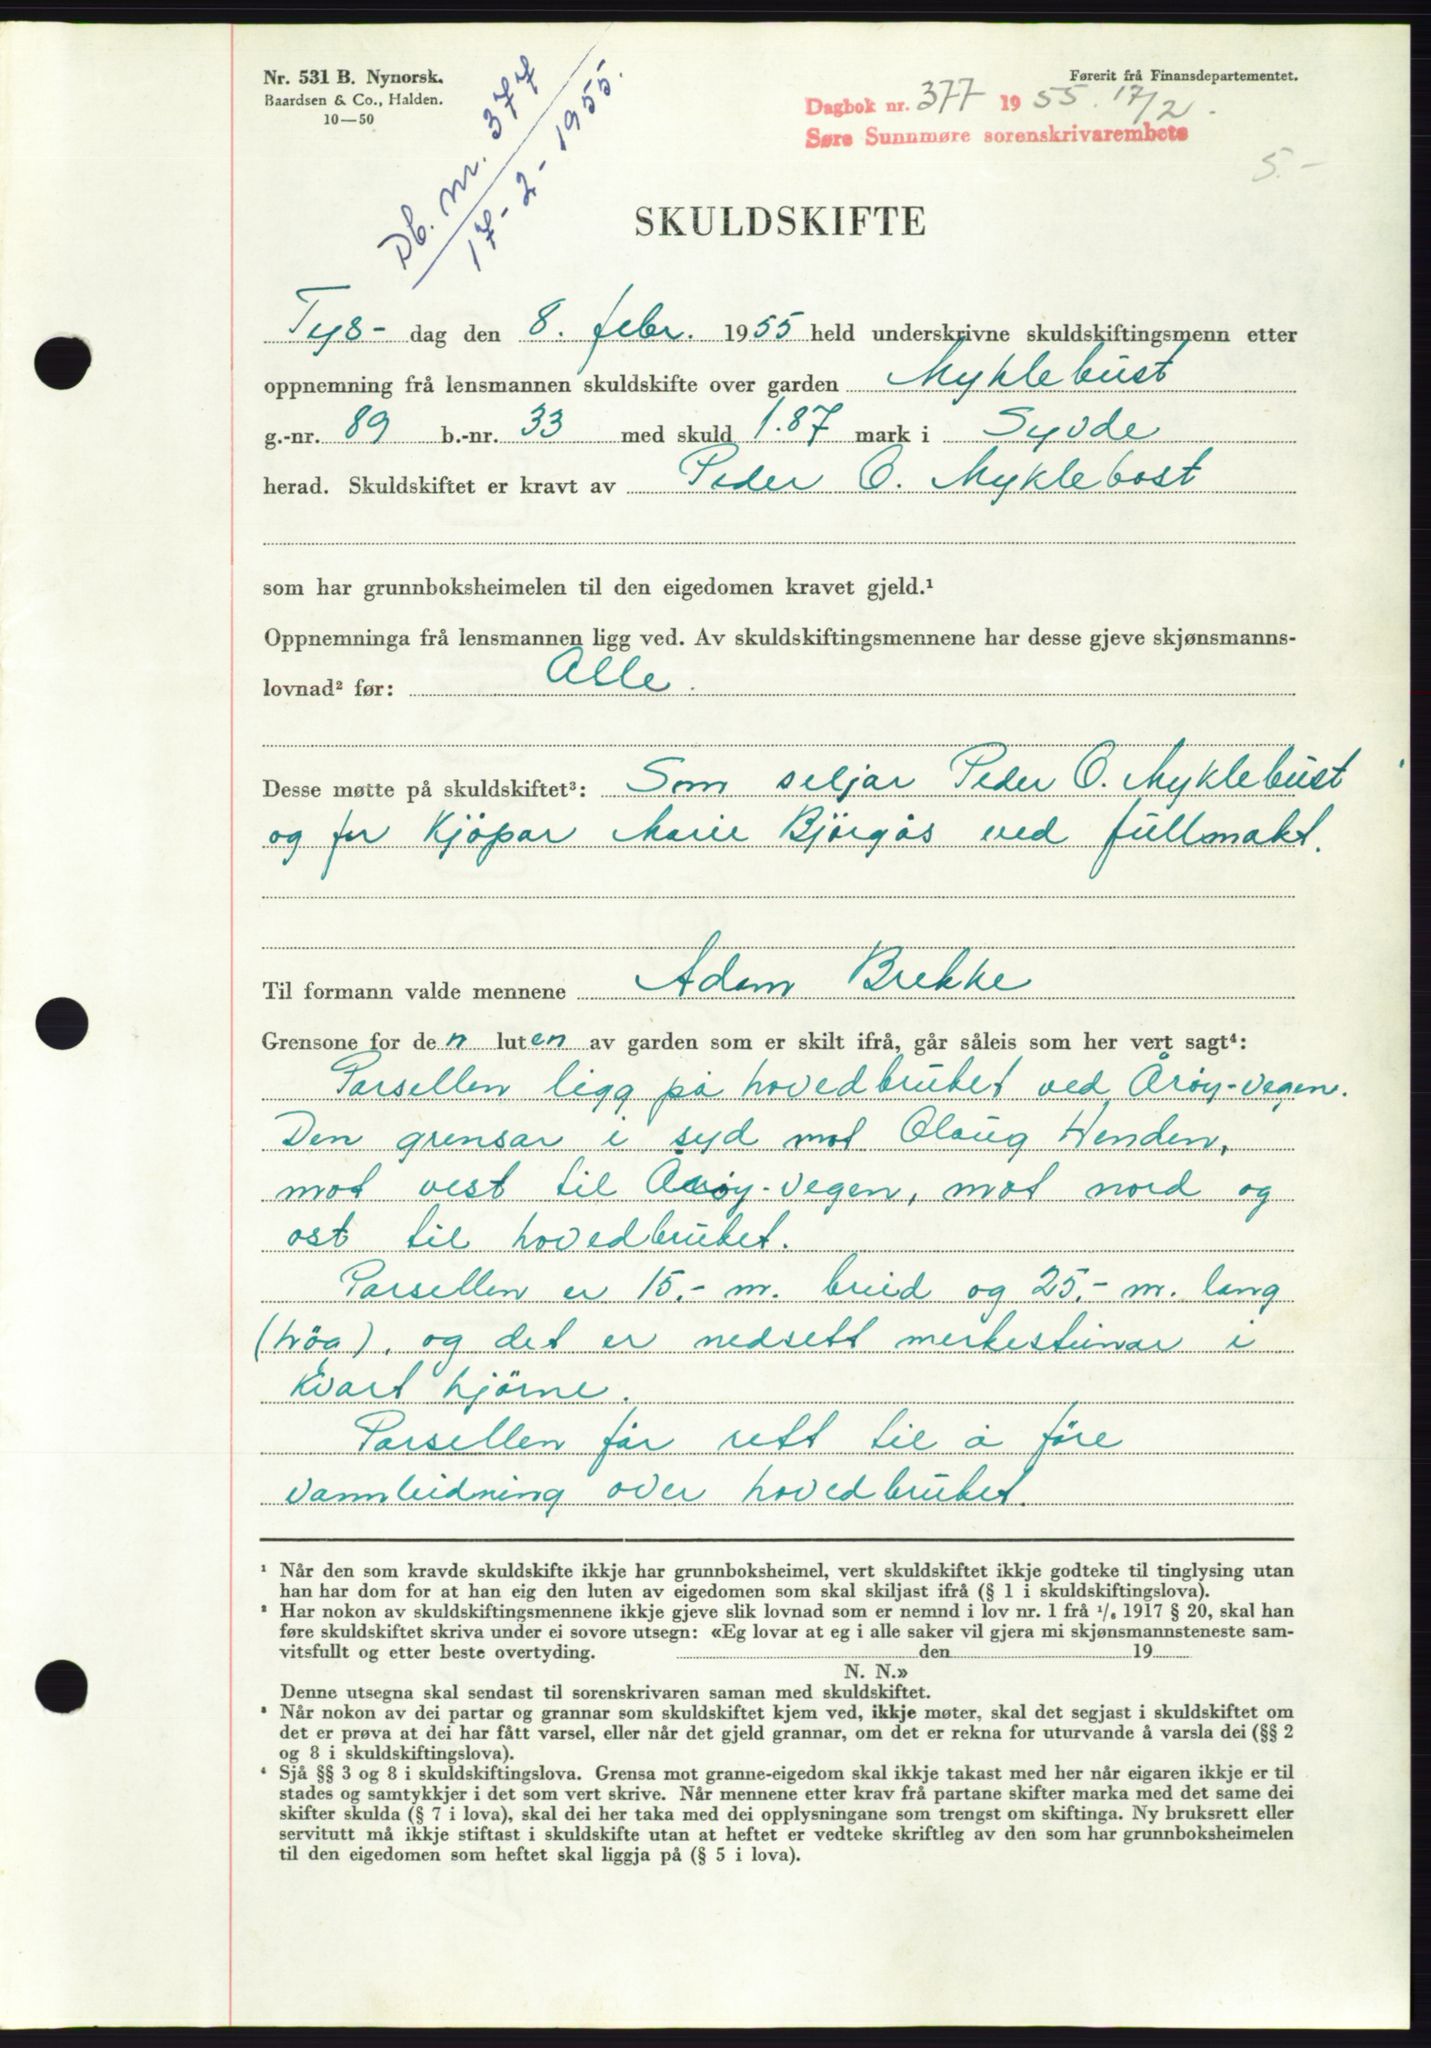 Nr. 531 B. Nynorsk.
Baardsen & Co., Halden.
10—50
Db. nr. 377
17-2-1955.
Førerit frå Finansdepartementet.
Dagbok nr. 377 1955. 17/2.
Søre Sunnmøre sorenskrivarembete
5.-
SKULDSKIFTE
Tys- dag den 8. febr. 1955 held underskrivne skuldskiftingsmenn etter
oppnemning frå lensmannen skuldskifte over garden Myklebust
g.-nr. 89 b.-nr. 33 med skuld 1.87 mark i Syvde
herad. Skuldskiftet er kravt av Peder O. Myklebost
som har grunnboksheimelen til den eigedomen kravet gjeld.¹
Oppnemninga frå lensmannen ligg ved. Av skuldskiftingsmennene har desse gjeve skjønsmanns-
lovnad² før: Alle.
Desse møtte på skuldskiftet³: Som seljar Peder O. Myklebust
og for Kjöpar Marie Bjørgås ved fullmakt.
Til formann valde mennene Adam Brekke
Grensone for den luten av garden som er skilt ifrå, går såleis som her vert sagt⁴:
Parsellen ligg på hovedbruket ved Årøy-vegen.
Den grensar i syd mot Olaug Henden,
mot vest til Årøy-vegen, mot nord og
ost til hovedbruket.
Parsellen er 15.- m. breid og 25.- m. lang
(høg), og det er nedsett merkesteinar i
kvart hjörne.
Parsellen får rett til å före
vannleidning over hovedbruket.
¹ Når den som kravde skuldskifte ikkje har grunnboksheimel, vert skuldskiftet ikkje godteke til tinglysing utan
han har dom for at han eig den luten av eigedomen som skal skiljast ifrå (§ 1 i skuldskiftingslova).
² Har nokon av skuldskiftingsmennene ikkje gjeve slik lovnad som er nemnd i lov nr. 1 frå 1/6 1917 § 20, skal han
føre skuldskiftet skriva under ei sovore utsegn: «Eg lovar at eg i alle saker vil gjera mi skjønsmannsteneste sam-
vitsfullt og etter beste overtyding. den 19
N. N.»
Denne utsegna skal sendast til sorenskrivaren saman med skuldskiftet.
³ Når nokon av dei partar og grannar som skuldskiftet kjem ved, ikkje møter, skal det segjast i skuldskiftet om
det er prøva at dei har fått varsel, eller når det gjeld grannar, om det er rekna for uturvande å varsla dei (§§ 2
og 8 i skuldskiftingslova).
⁴ Sjå §§ 3 og 8 i skuldskiftingslova. Grensa mot granne-eigedom skal ikkje takast med her når eigaren ikkje er til
stades og samtykkjer i det som vert skrive. Når mennene etter krav frå partane skifter marka med det same dei
skifter skulda (§ 7 i lova), skal dei her taka med dei opplysningane som trengst om skiftinga. Ny bruksrett eller
servitutt må ikkje stiftast i skuldskifte utan at heftet er vedteke skriftleg av den som har grunnboksheimelen
til den eigedomen som heftet skal liggja på (§ 5 i lova).